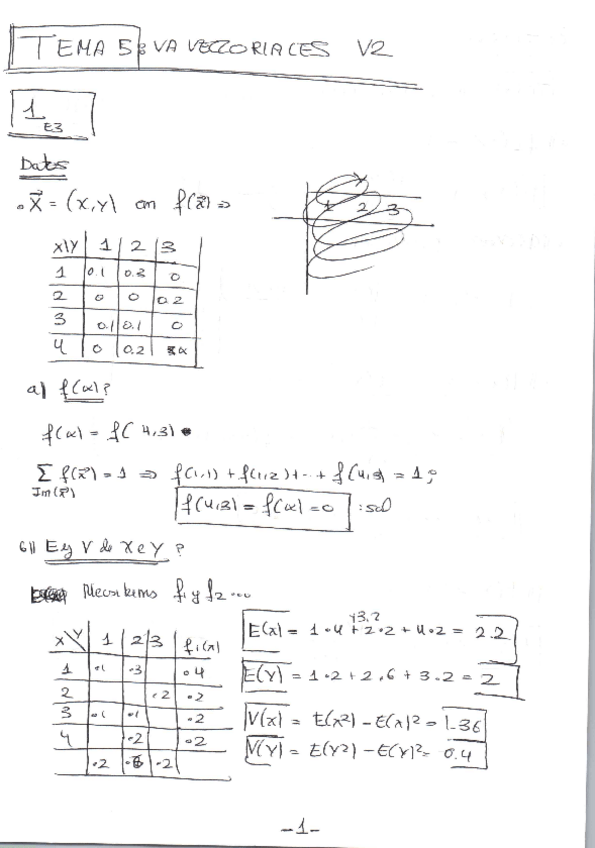 TEMA 5: VA VECTORIALES V2
1
E3
Datos
Y
1 2 3
. X⃗ = (X,Y) con f(x⃗) ⇒
X\Y 1 2 3
1 0.1 0.3 0
2 0 0 0.2
3 0.1 0.1 0
4 0 0.2 α
a) f(α)?
f(α) = f(4,3)
∑ f(x⃗) = 1 ⇒ f(1,1) + f(1,2) + ... + f(4,3) = 1;
Im(x⃗)
f(4,3) = f(α) = 0 : sol
b) E y V de X e Y?
Necesitamos f1 y f2 ...
X\Y 1 2 3 f1(x)
1 .1 .3 .4
2 .2 .2
3 .1 .1 .2
4 .2 .2
.2 .6 .2
+3.2
E(x) = 1.4 + 2.2 + 4.2 = 2.2
E(Y) = 1.2 + 2.6 + 3.2 = 2
V(x) = E(x²) - E(x)² = 1.36
V(Y) = E(Y²) - E(Y)² = 0.4
-1-